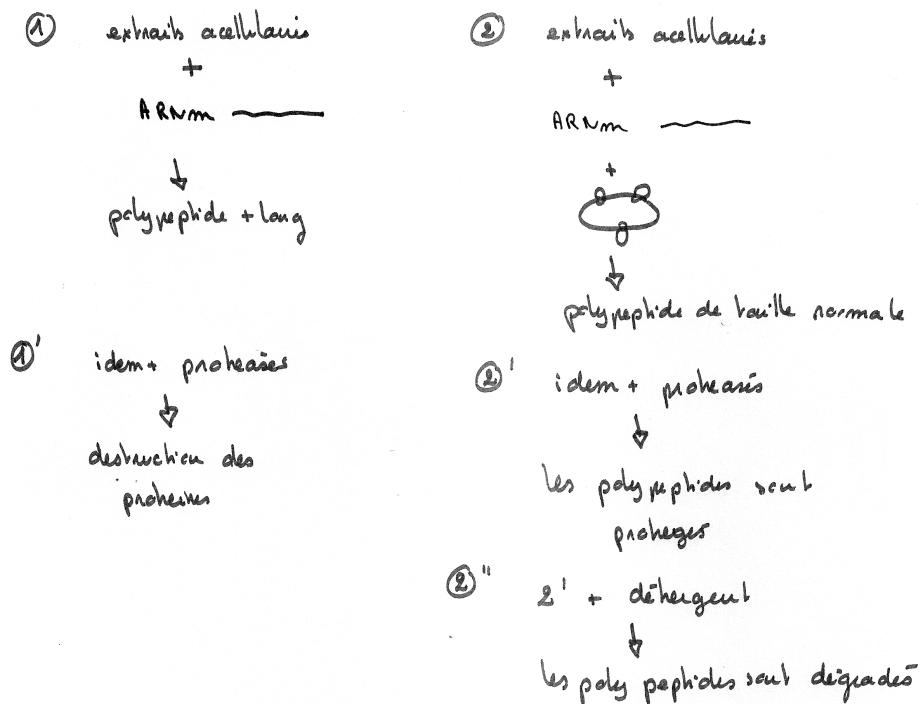 ① extraits acellulaires
+
ARNm
polypeptide + long
①' idem + proteases
destruction des
proteines
② extraits acellulaires
+
ARNm
+
polypeptide de taille normale
②' idem + proteases
les polypeptides sont
proteges
②" 2' + détergent
les poly peptides sont dégradés